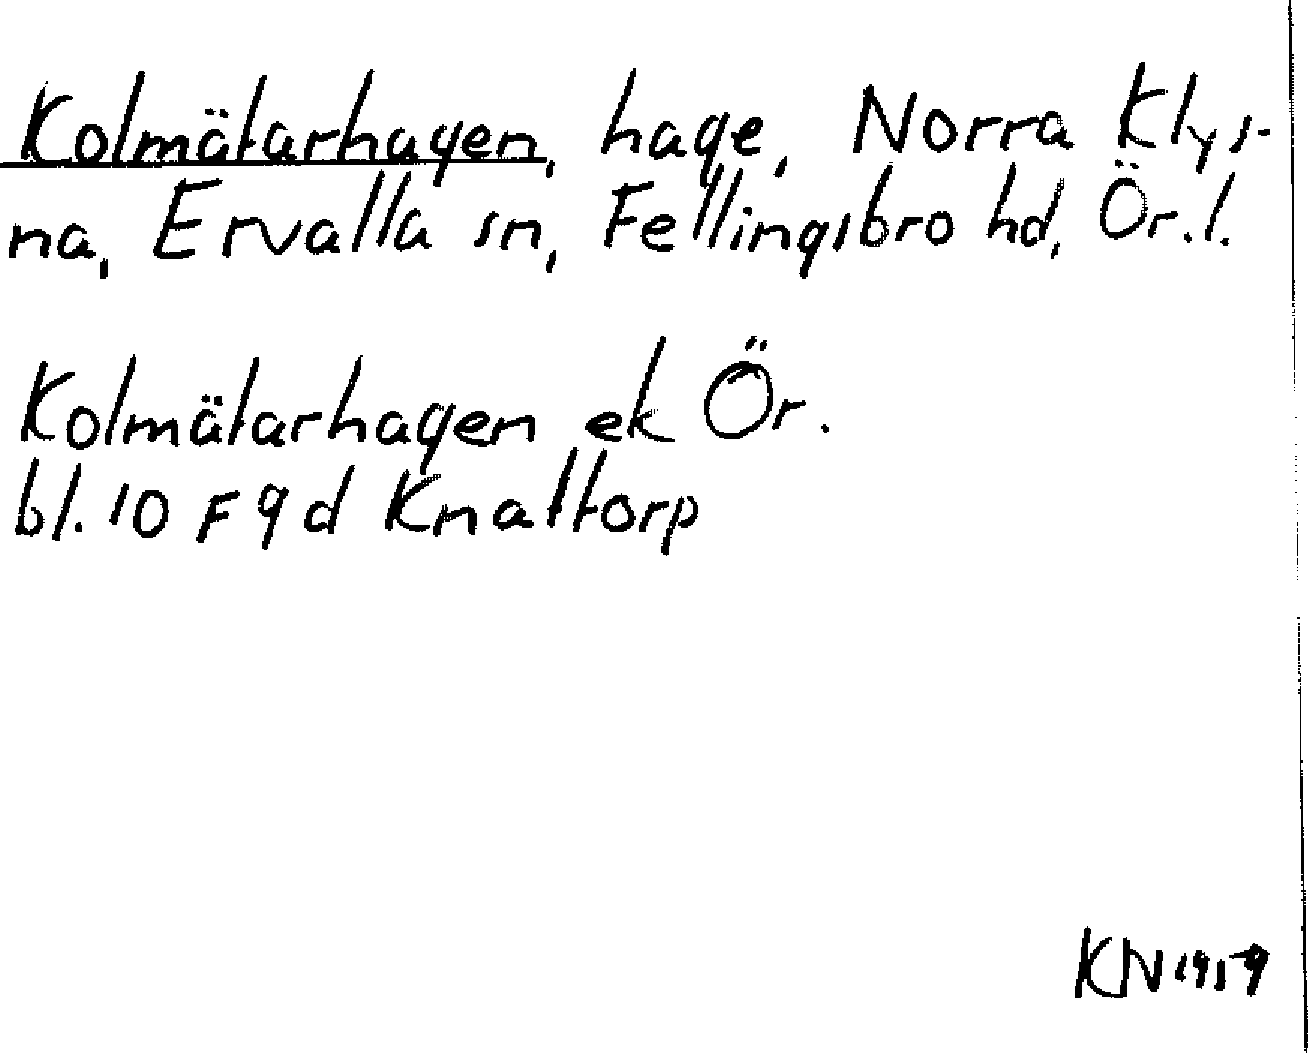 Kolmätarhagen, hage, Norra Klys-
na, Ervalla sn, Fellingsbro hd, Ör.l.
Kolmätarhagen ek Ör.
bl. 10 F 9 d Knattorp
KN 1959